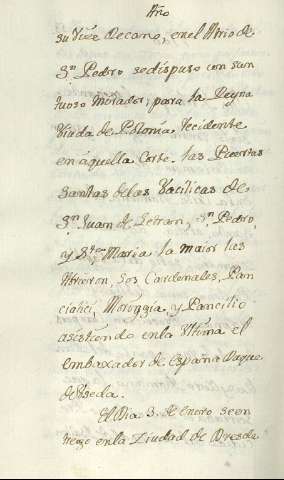 Año
su Vize Decano, en el Atrio de
Sn Pedro se dispuso con sun
tuoso mirador, para la Reyna
Viuda de Polonia recidente
en aquella Corte. las Puertas
santas de las Vacilicas de
Sn Juan de Letran, Sn Pedro,
y Sta Maria la maior les
Abrieron, los Cardenales, Pan
ciatici, Moriggia, y Pancilio
asistiendo en la Vltima el
embaxador de España Duque
de Vzeda.
El Dia 3. de Enero se en
trego en la Ziudad de Dresda